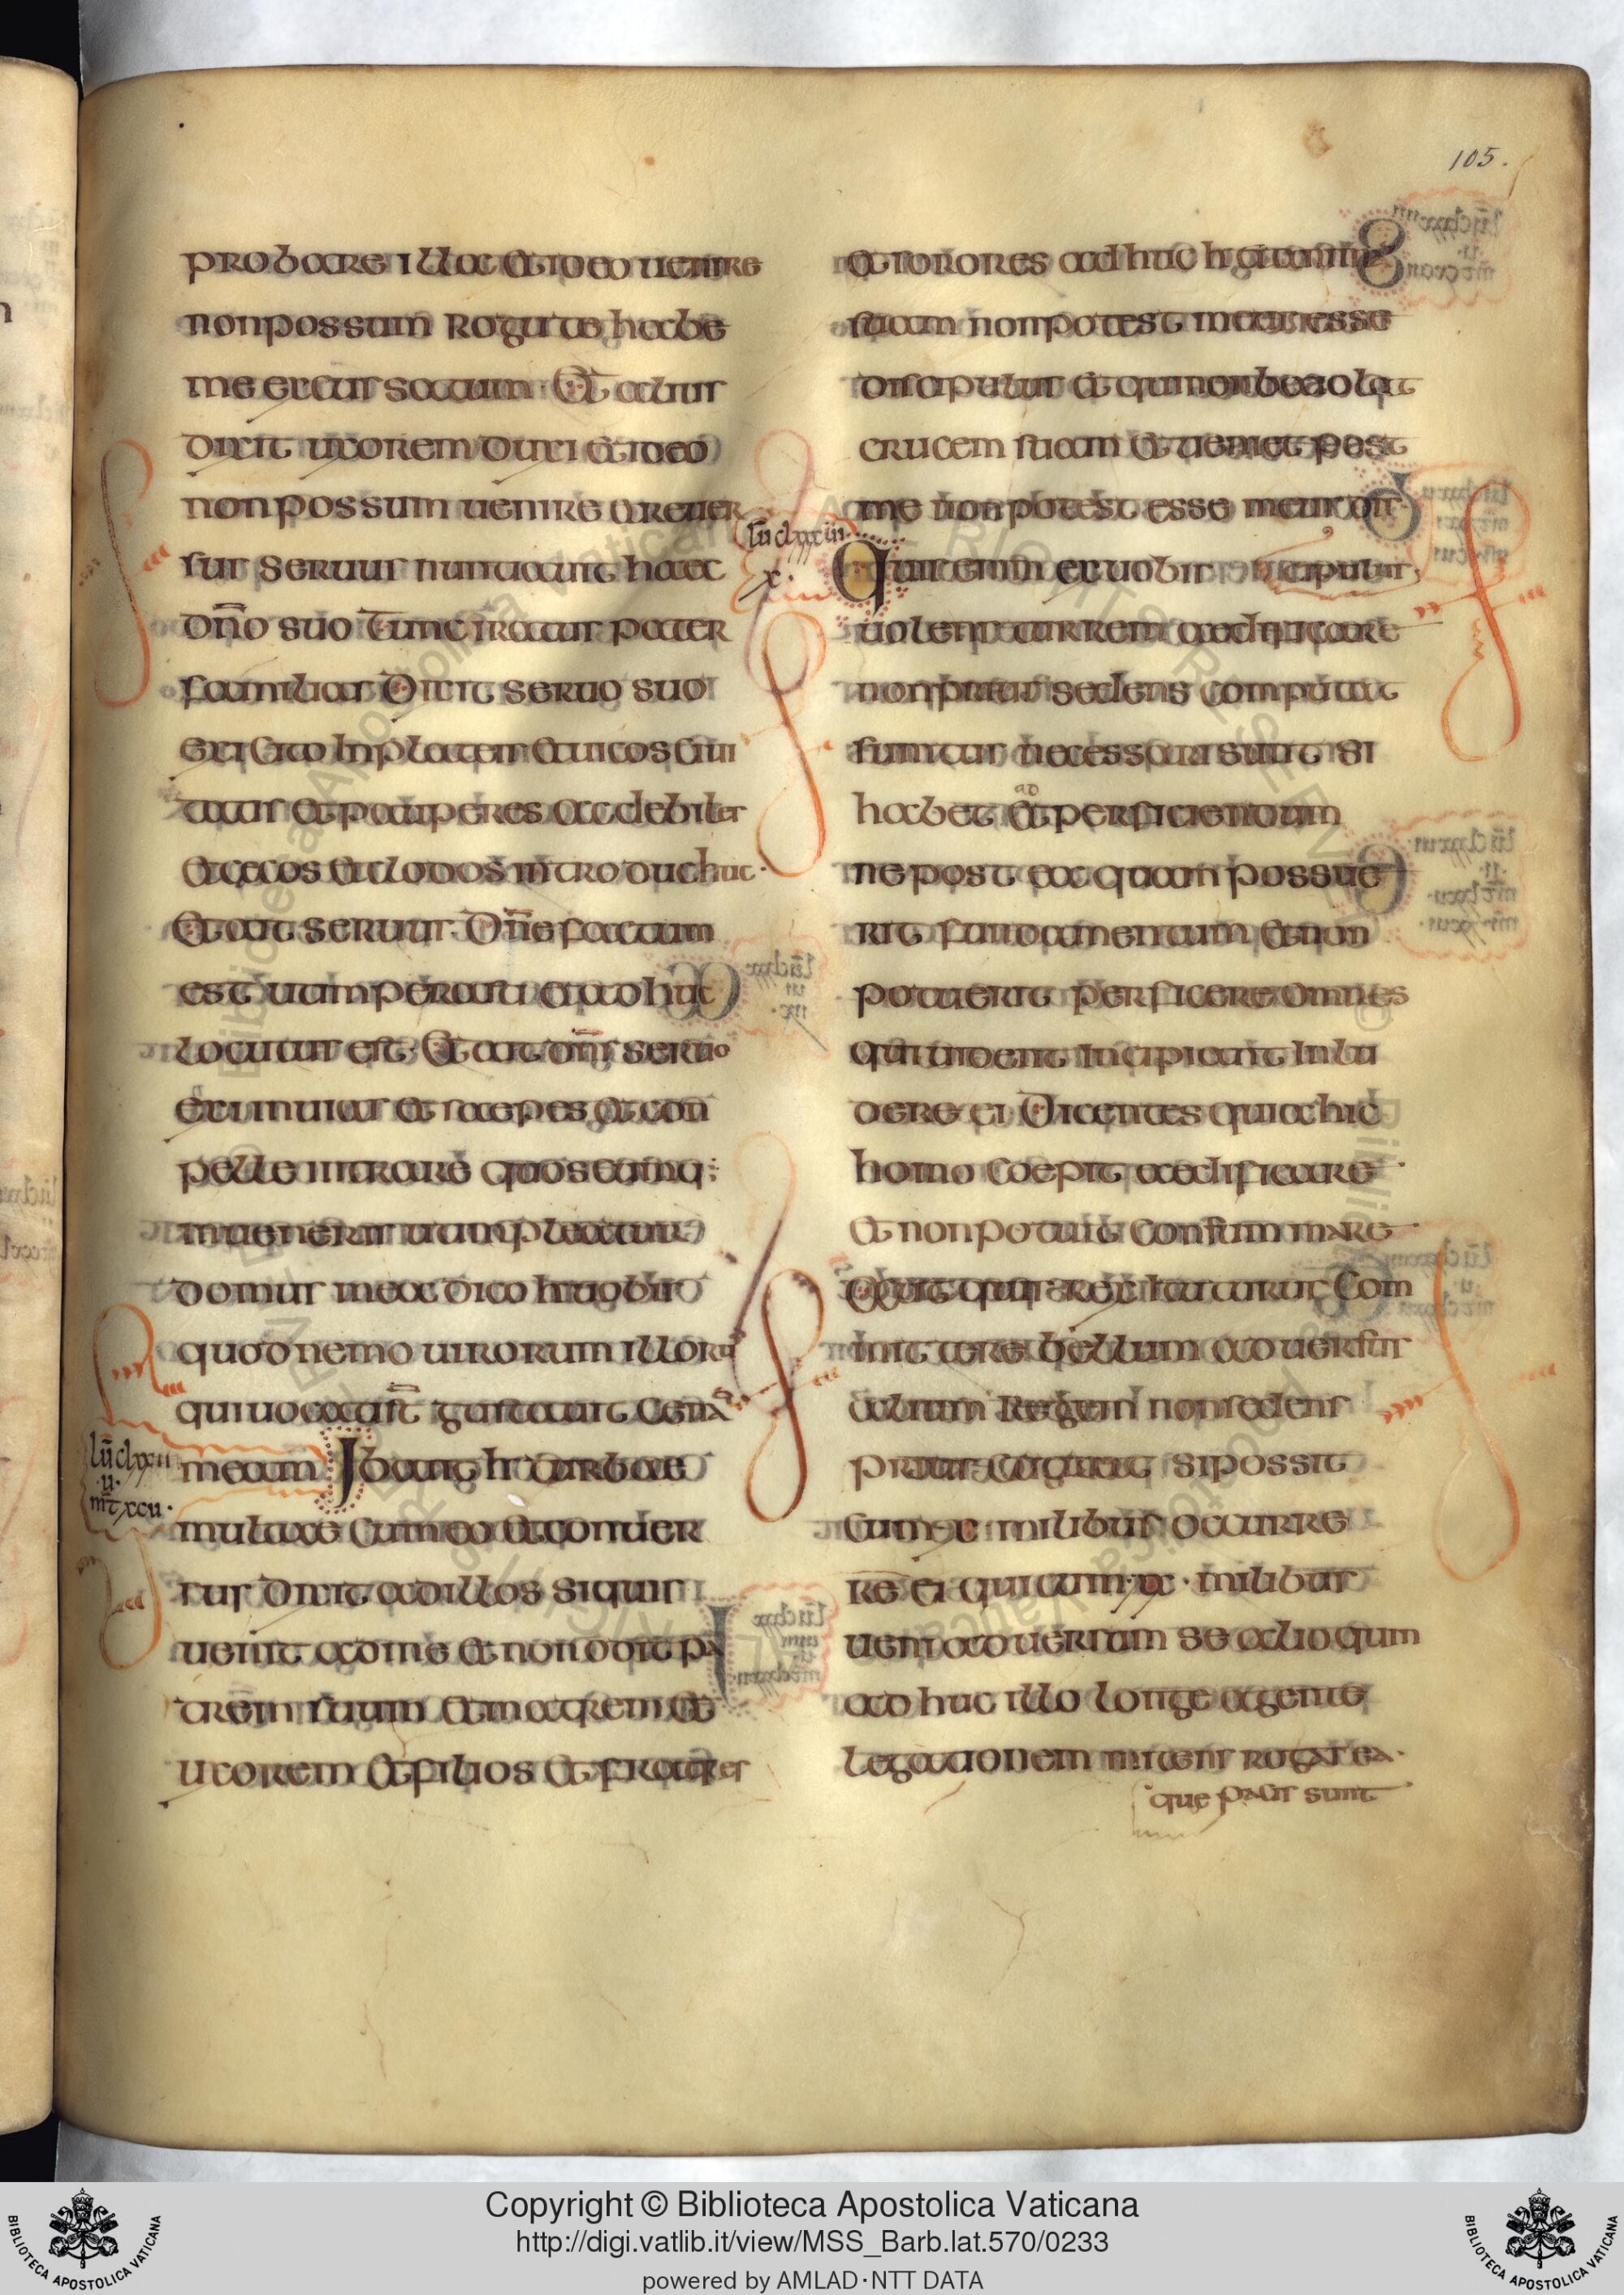 105.
probare illa et ideo uenire
non possum Rogo te habe
me excussatum Et alius
dixit uxorem duxi et ideo
non possum uenire et reuer
sus seruus nuntiauit haec
dn̄o suo Tunc iratus pater
familias Dixit seruo suo
exi Cito In plateas et uicos Ciui
tatis et pauperes ac debiles
et cecos et clodos introduc huc.
Et ait seruus Dn̄e factum
est ut imperasti et adhuc
locus est. Et ait dn̄s seruo
exi in uias et saepes et con
pelle intrare quoscumq;
inueneris ut impleatur
domus mea dico h uobis
quod nemo uirorum illorū
qui uocati st̄ gustauit Cenā
meam Ibant h turbae
multae Cum eo et conuer
sus Dixit ad illos si quis
uenit ad me et non odit pa
trem suum et matrem et
uxorem et filios et fratres
lū clxxii
u.
mt̄ xcu.
et sorores adhuc h et animā
suam non potest meus esse
discipulus et qui non baiolat
crucem suam et uenit post
me non potest esse meus dis
cipulus,
lū clxxiii
x.
Quis enim ex uobis
uolens turrem aedificare
non prius sedens Computat
sumtus necessari sunt si
habet ad perficiendum
ne post ea quam possue
rit fundamentum et non
potuerit perficere omnes
qui uident Incipiant Inlu
dere ei Dicentes quia hic
homo Coepit aedificare
et non potuit Consummare
aut qui rex iturus Com
mittere bellum aduersus
alium Regem non sedens
prius Cogitat si possit
Cum x milibus occurre
re ei qui cum xx milibus
uenit aduersum se alioquin
adhuc illo longe agente
legationem mittens rogat ea.
que pacis sunt
Copyright © Biblioteca Apostolica Vaticana
http://digi.vatlib.it/view/MSS_Barb.lat.570/0233
powered by AMLAD·NTT DATA
BIBLIOTECA APOSTOLICA VATICANA
BIBLIOTECA APOSTOLICA VATICANA